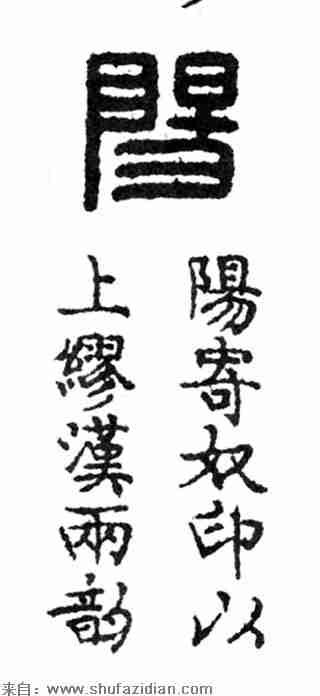 陽
陽寄奴印以
上繆漢兩韵
来自：www.shufazidian.com